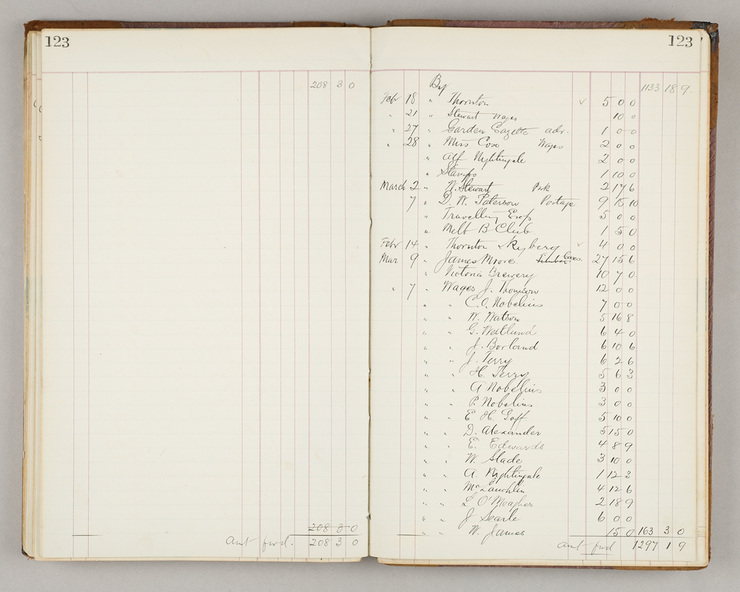 123
208 3 0
208 3 0
Amt fwd. 208 3 0
123
By 1133 18 9
Febr 18 " Thornton v 5 0 0
" 21 " Stewart Wages 10 0
" 27 " Garden Gazette adv. 1 0 0
" 28 " Miss Cox Wages 2 0 0
" Alf Nightingale 2 0 0
" Stamps 1 10 0
March 2 " N. Stewart 2 17 6
7 " D. W. Paterson Postage 9 15 10
" Travelling Exps 5 0 0
" Melb B. Club 1 5 0
Febr 14 " Thornton & Kyberg v 4 0 0
Mar 9 " James Moore Cases 27 15 6
" Victoria Brewery 10 7 0
" 7 " Wages J. Thornton 12 0 0
" " C. O. Nobelius 7 0 0
" " W. Watson 5 16 8
" " G. Wetlund 6 4 0
" " J. Borland 6 10 6
" " J. Terry 6 2 6
" " H. Terry 5 6 3
" " A Nobelius 3 0 0
" " P. Nobelius 3 0 0
" " E H. Goff 5 10 0
" " D. Alexander 5 15 0
" " E. Edwards 4 8 9
" " W. Slade 3 10 0
" " A. Nightingale 1 12 2
" " McLauchlin 4 12 6
" " L O'Meagher 2 18 9
" " J Searle 6 0 0
" " W. James 15 0 163 3 0
Amt fwd 1297 1 9